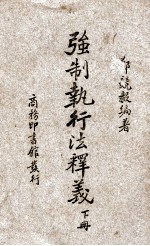 鄭競毅編著
強制執行法釋義 下冊
商務印書館發行